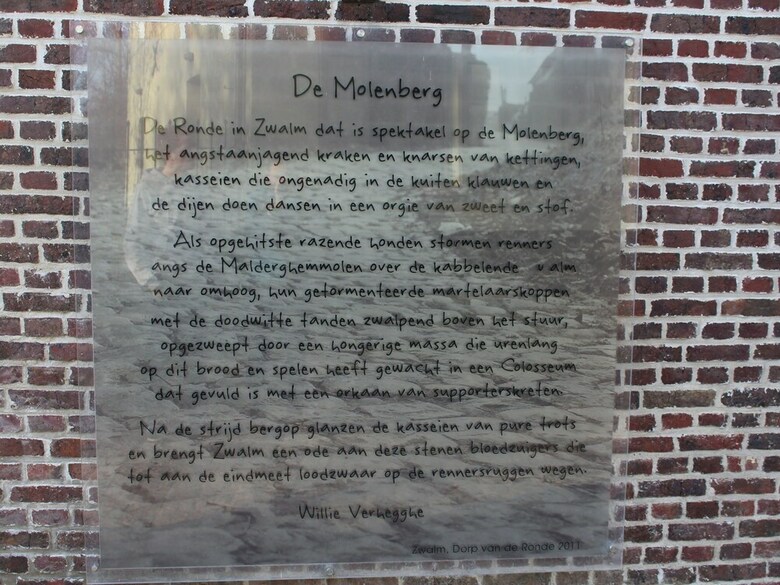 De Molenberg
De Ronde in Zwalm dat is spektakel op de Molenberg,
het angstaanjagend kraken en knarsen van kettingen,
kasseien die ongenadig in de kuiten klauwen en
de dijen doen dansen in een orgie van zweet en stof.
Als opgehitste razende honden stormen renners
angs de Malderghemmolen over de kabbelende  valm
naar omhoog, hun getormenteerde martelaarskoppen
met de doodwitte tanden zwalpend boven het stuur,
opgezweept door een hongerige massa die urenlang
op dit brood en spelen heeft gewacht in een Colosseum
dat gevuld is met een orkaan van supporterskreten.
Na de strijd bergop glanzen de kasseien van pure trots
en brengt Zwalm een ode aan deze stenen bloedzuigers die
tot aan de eindmeet loodzwaar op de rennersruggen wegen.
Willie Verhegghe
Zwalm, Dorp van de Ronde 2011